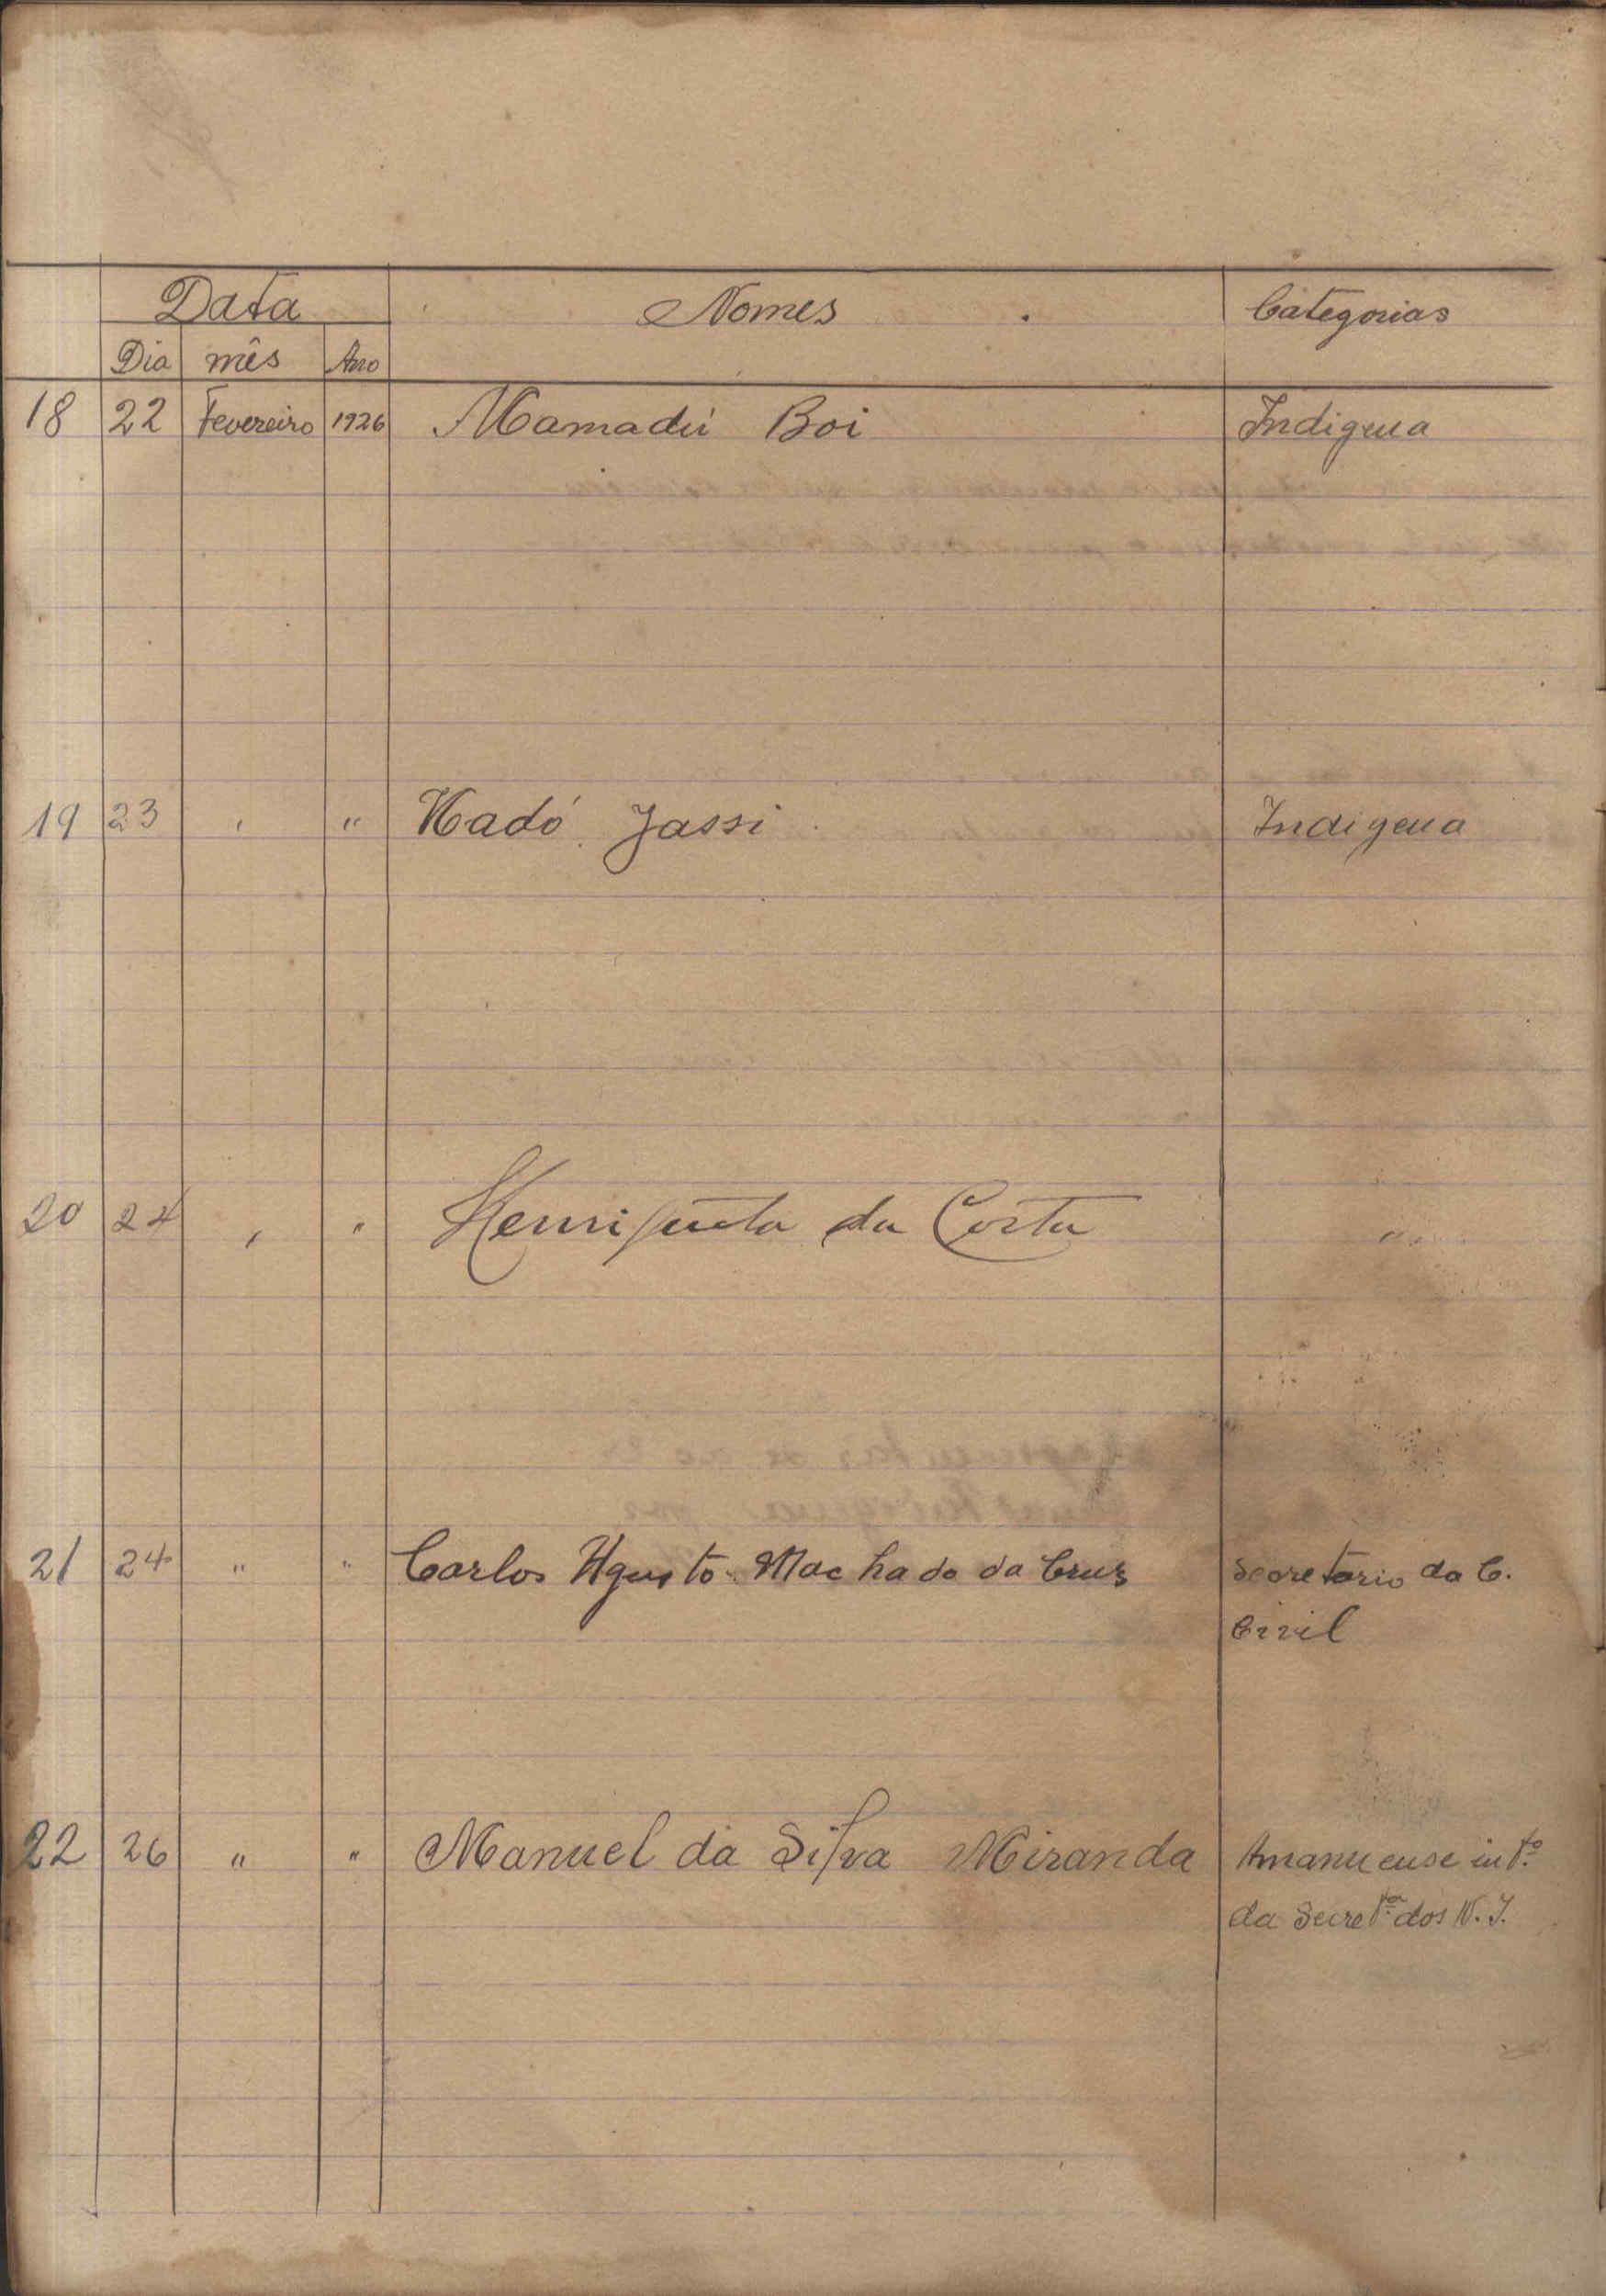 Data Nomes Categorias
Dia mês Ano
18 22 Fevereiro 1926 Mamadú Boi Indigena
19 23 " " Nadó Jassi Indigena
20 24 " " Henriqueta da Costa "
21 24 " " Carlos Agusto Machado da Crus Secretario da C.
Civil
22 26 " " Manuel da Silva Miranda Amanuense intº.
da Secretª. dos N. I.